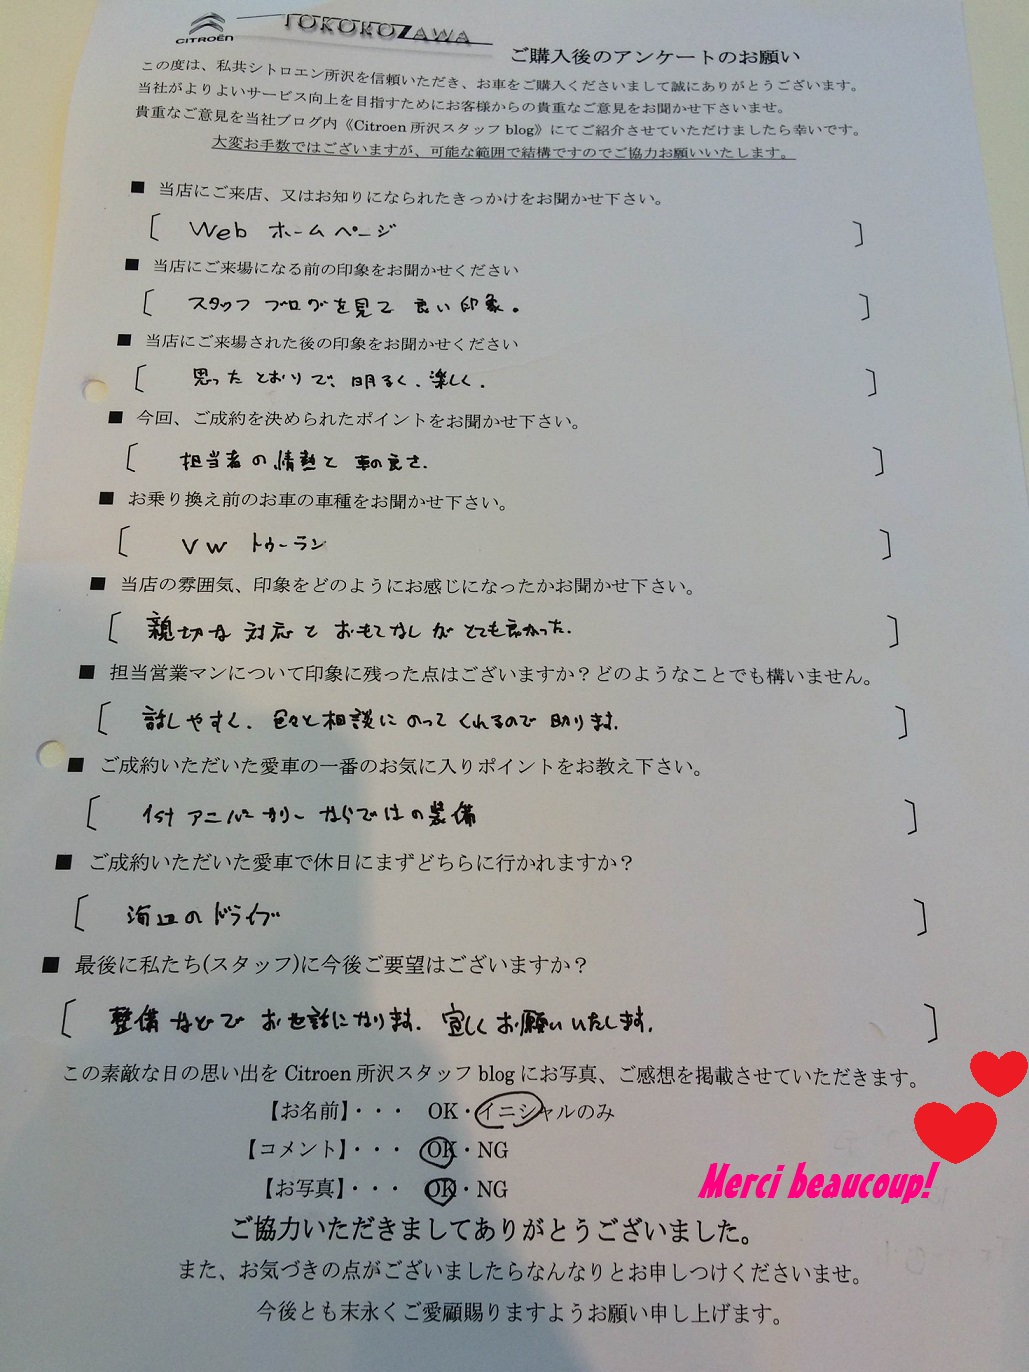 CITROËN
TOKOROZAWA
ご購入後のアンケートのお願い
この度は、私共シトロエン所沢を信頼いただき、お車をご購入くださいまして誠にありがとうございます。
当社がよりよいサービス向上を目指すためにお客様からの貴重なご意見をお聞かせ下さいませ。
貴重なご意見を当社ブログ内《Citroen 所沢スタッフ blog》にてご紹介させていただけましたら幸いです。
大変お手数ではございますが、可能な範囲で結構ですのでご協力お願いいたします。
■ 当店にご来店、又はお知りになられたきっかけをお聞かせ下さい。
〔 Web ホームページ 〕
■ 当店にご来場になる前の印象をお聞かせください
〔 スタッフ ブログを見て 良い印象。 〕
■ 当店にご来場された後の印象をお聞かせください
〔 思ったとおりで、明るく、楽しく。 〕
■ 今回、ご成約を決められたポイントをお聞かせ下さい。
〔 担当者の情熱と 車の良さ。 〕
■ お乗り換え前のお車の車種をお聞かせ下さい。
〔 VW トゥーラン 〕
■ 当店の雰囲気、印象をどのようにお感じになったかお聞かせ下さい。
〔 親切な対応と おもてなしが とても良かった。 〕
■ 担当営業マンについて印象に残った点はございますか？どのようなことでも構いません。
〔 話しやすく、色々と相談にのってくれるので助ります。 〕
■ ご成約いただいた愛車の一番のお気に入りポイントをお教え下さい。
〔 1st アニバーサリー ならではの装備 〕
■ ご成約いただいた愛車で休日にまずどちらに行かれますか？
〔 海辺のドライブ 〕
■ 最後に私たち(スタッフ)に今後ご要望はございますか？
〔 整備などで お世話になります。宜しくお願いいたします。 〕
この素敵な日の思い出を Citroen 所沢スタッフ blog にお写真、ご感想を掲載させていただきます。
【お名前】・・・ OK・イニシャルのみ
【コメント】・・・ OK・NG
【お写真】・・・ OK・NG
Merci beaucoup!
ご協力いただきましてありがとうございました。
また、お気づきの点がございましたらなんなりとお申しつけくださいませ。
今後とも末永くご愛顧賜りますようお願い申し上げます。